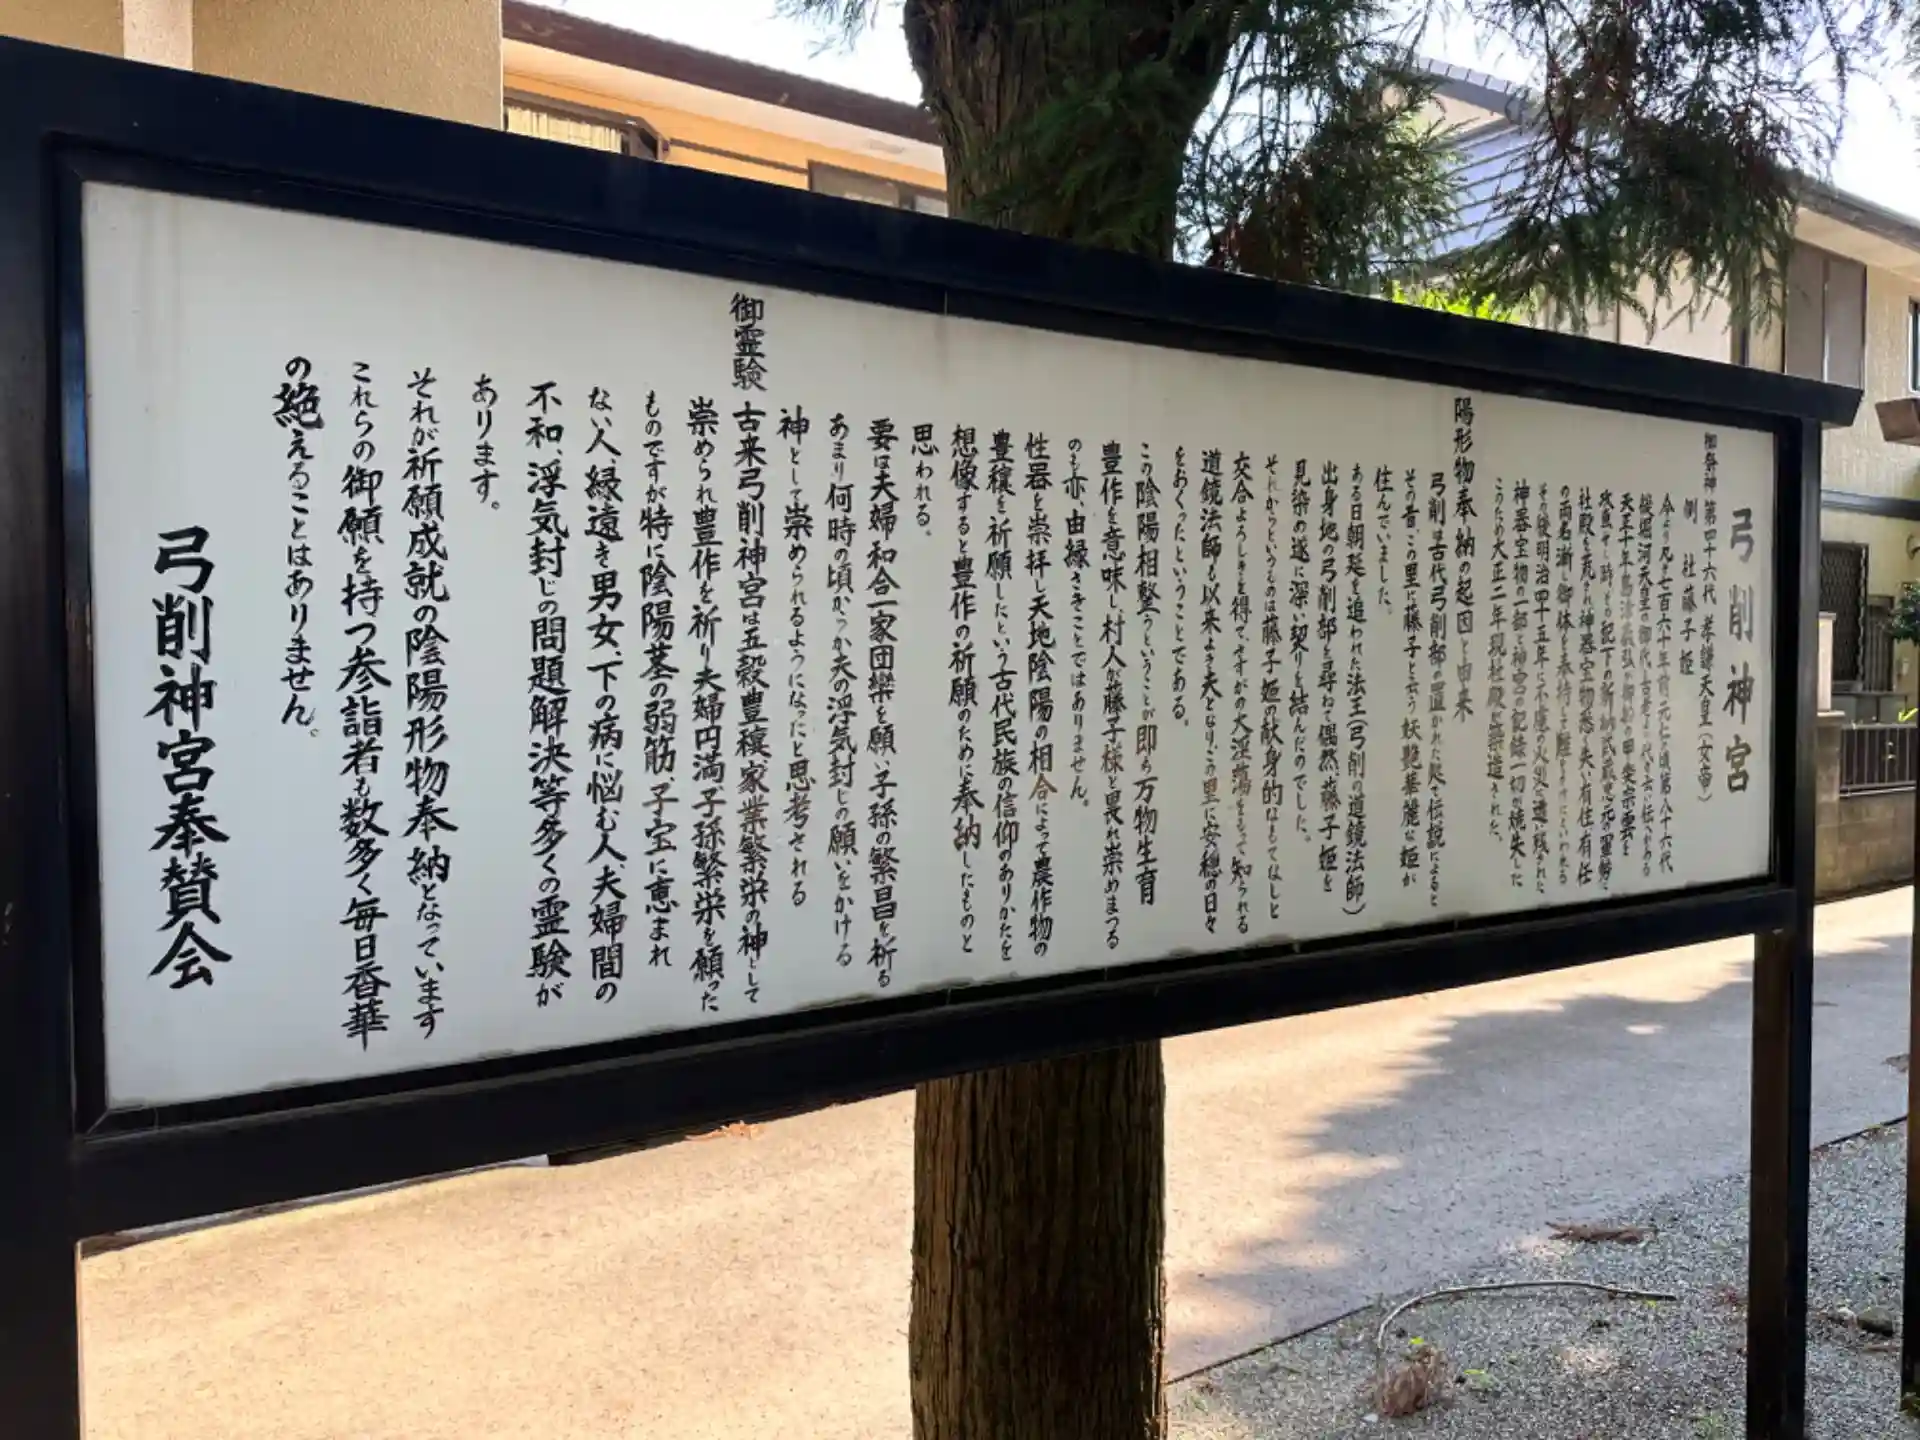 弓削神宮
御祭神 第四十六代 孝謙天皇(女帝)
側 社 藤子姫
今より凡そ七百六十年前 元仁の頃第八十六代
後堀河天皇の御代と古老よりの代々言い伝えがある
天正十年島津義弘の御船の甲斐宗雲を
攻血せし時その配下の新納武蔵忠元の軍勢に
社殿を荒され神器宝物悉く失い有住有任
の両名漸く御体を奉持して難をさけたといわれる
その後明治四十五年に不慮の火災に遭い残された
神器宝物の一部と神宮の記録一切が焼失した
このため大正二年現社殿が築造された。
陽形物奉納の起因と由来
弓削は古代弓削部の置かれた処で伝説によると
その昔、この里に藤子と云う妖艶華麗な姫が
住んでいました。
ある日朝廷を追われた法王(弓削の道鏡法師)
出身地の弓削部を尋ねて偶然、藤子姫を
見染め遂に深い契りを結んだのでした。
それからというものは藤子姫の献身的なもてなしと
交合よろしきを得て、さすがの大淫蕩をもって知られる
道鏡法師も以来よき夫となり、この里に安穏の日々
をおくったということである。
この陰陽相整うということが即ち万物生育
豊作を意味し、村人が藤子様と畏れ崇めまつる
のも亦、由縁なきことではありません。
性器を崇拝し天地陰陽の相合によって農作物の
豊穣を祈願したという古代民族の信仰のありかたを
想像すると豊作の祈願のために奉納したものと
思われる。
要は夫婦和合一家団欒を願い、子孫の繁昌を祈る
あまり何時の頃からか夫の浮気封じの願いをかける
神として崇められるようになったと思考される
御霊験 古来弓削神宮は五穀豊穣、家業繁栄の神として
崇められ豊作を祈り夫婦円満、子孫繁栄を願った
ものですが特に陰陽茎の弱筋、子宝に恵まれ
ない人、縁遠き男女、下の病に悩む人、夫婦間の
不和、浮気封じの問題解決等多くの霊験が
あります。
それが祈願成就の陰陽形物奉納となっています
これらの御願を持つ参詣者も数多く毎日香華
の絶えることはありません。
弓削神宮奉賛会